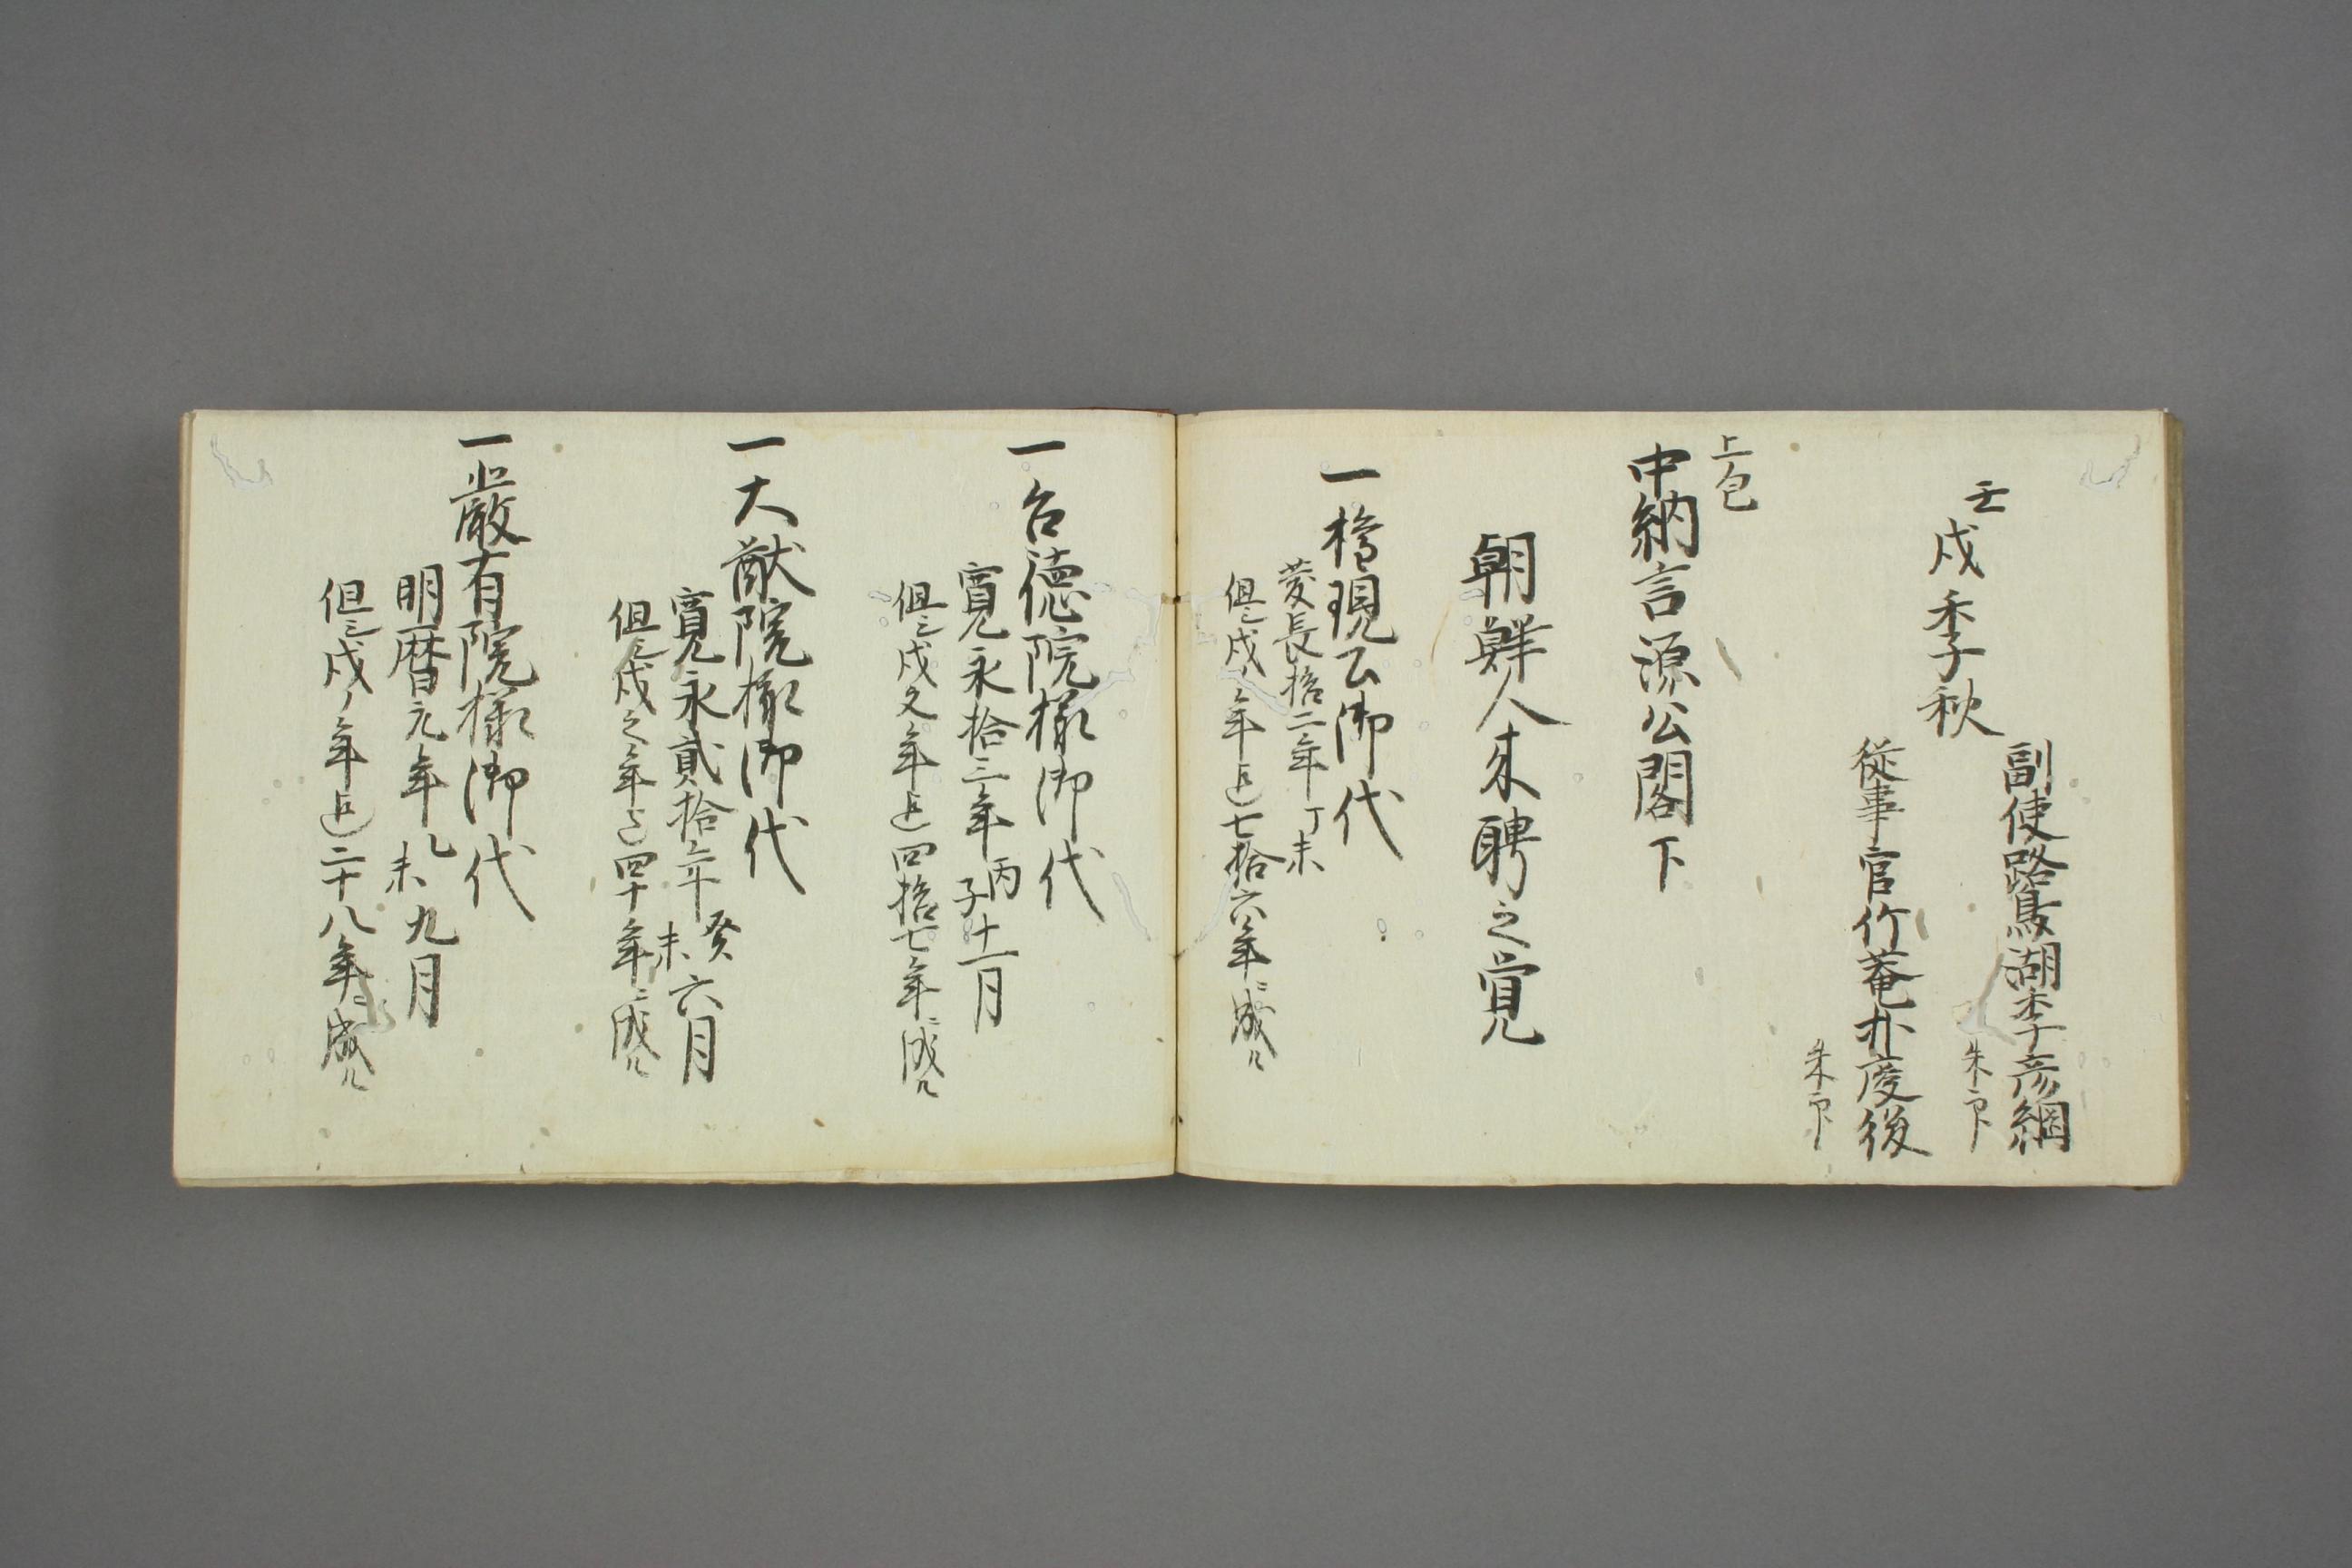 壬戌季秋
副使鷺湖李彦綱
朱印
従事官竹菴朴慶後
朱印
上包
中納言源公閣下
朝鮮人来聘之覚
一権現公御代
慶長拾二年丁未
但シ戌ノ年迄七拾六年ニ成ル
一台徳院様御代
寛永拾三年丙子十一月
但シ戌ノ年迄四拾七年ニ成ル
一大猷院様御代
寛永貳拾年癸未六月
但シ戌之年迄四十年ニ成ル
一厳有院様御代
明暦元年乙未九月
但シ戌ノ年迄二十八年ニ成ル